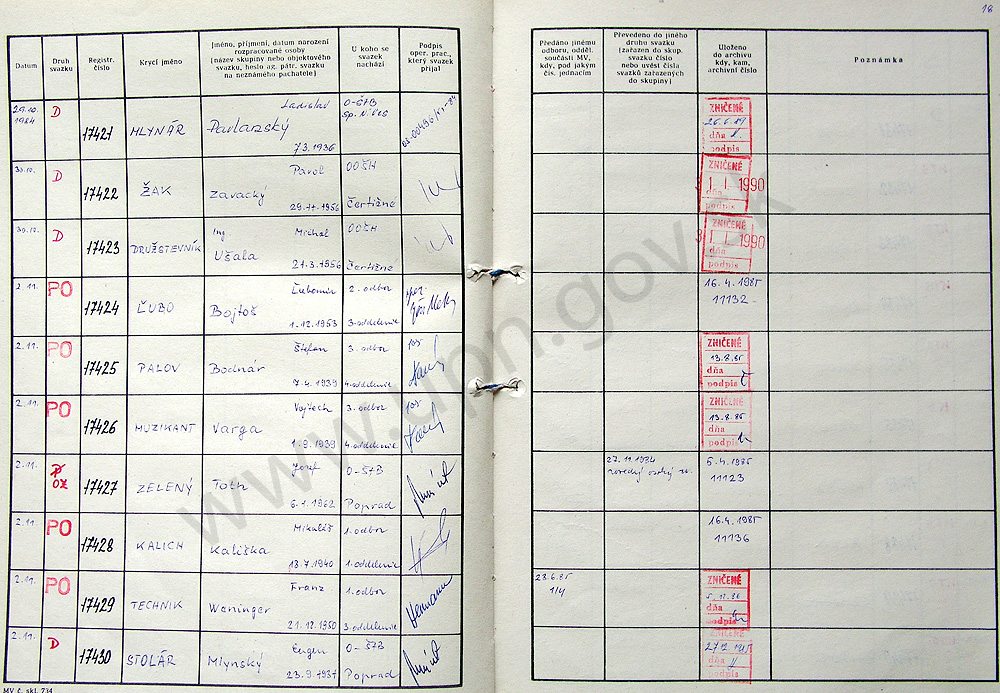 18
Datum
Druh svazku
Registr. číslo
Krycí jméno
Jméno, příjmení, datum narození
rozpracované osoby
(název skupiny nebo objektového
svazku, heslo ag. pátr. svazku
na neznámého pachatele)
U koho se
svazek
nachází
Podpis
oper. prac.,
který svazek
přijal
Předáno jinému
odboru, odděl.
součásti MV,
kdy, pod jakým
čís. jednacím
Převedeno do jiného
druhu svazku
(zařazen do skup.
svazku číslo
nebo uvést čísla
svazků zařazených
do skupiny)
Uloženo
do archivu
kdy, kam,
archivní číslo
Poznámka
29.10.
1984
D
17421
MLYNÁR
Ladislav
Pavlarský
7.3.1936
O-ŠTB
ZNIČENÉ
26.6.89
dňa
podpis
30.10.
D
17422
ŽAK
Pavol
Zavacký
29.11.1956
OOŠH
Čertižné
ZNIČENÉ
31 1. 1990
dňa
podpis
30.10.
D
17423
DRUŽSTEVNÍK
Ing
Michal
Ušala
21.3.1956
OOŠH
Čertižne
ZNIČENÉ
31 1. 1990
dňa
podpis
2.11.
PO
17424
ĽUBO
Ľubomír
Bojtoš
1.12.1953
2. odbor
3. oddelenie
16.4.1985
11132
2.11.
PO
17425
PALOV
Štefan
Bodnár
7.4.1939
3. odbor
4. oddelenie
ZNIČENÉ
13.8.85
dňa
podpis
2.11.
PO
17426
MUZIKANT
Vojtech
Varga
1.9.1939
3. odbor
4. oddelenie
ZNIČENÉ
13.8.85
dňa
podpis
2.11.
OZ
17427
ZELENÝ
Jozef
Toth
6.1.1962
O-ŠTB
Poprad
5.4.1985
11123
2.11.
PO
17428
KALICH
Mikuláš
Kališka
13.7.1940
1. odbor
1. oddelenie
16.4.1985
11136
2.11.
PO
17429
TECHNIK
Franz
Weninger
21.12.1950
1. odbor
3. oddelenie
23.6.85
1/4
ZNIČENÉ
dňa
podpis
2.11.
D
17430
STOLÁR
Eugen
Mlynský
23.9.1931
O-ŠTB
Poprad
ZNIČENÉ
dňa
podpis
MV č. skl. 734
www.upn.gov.sk